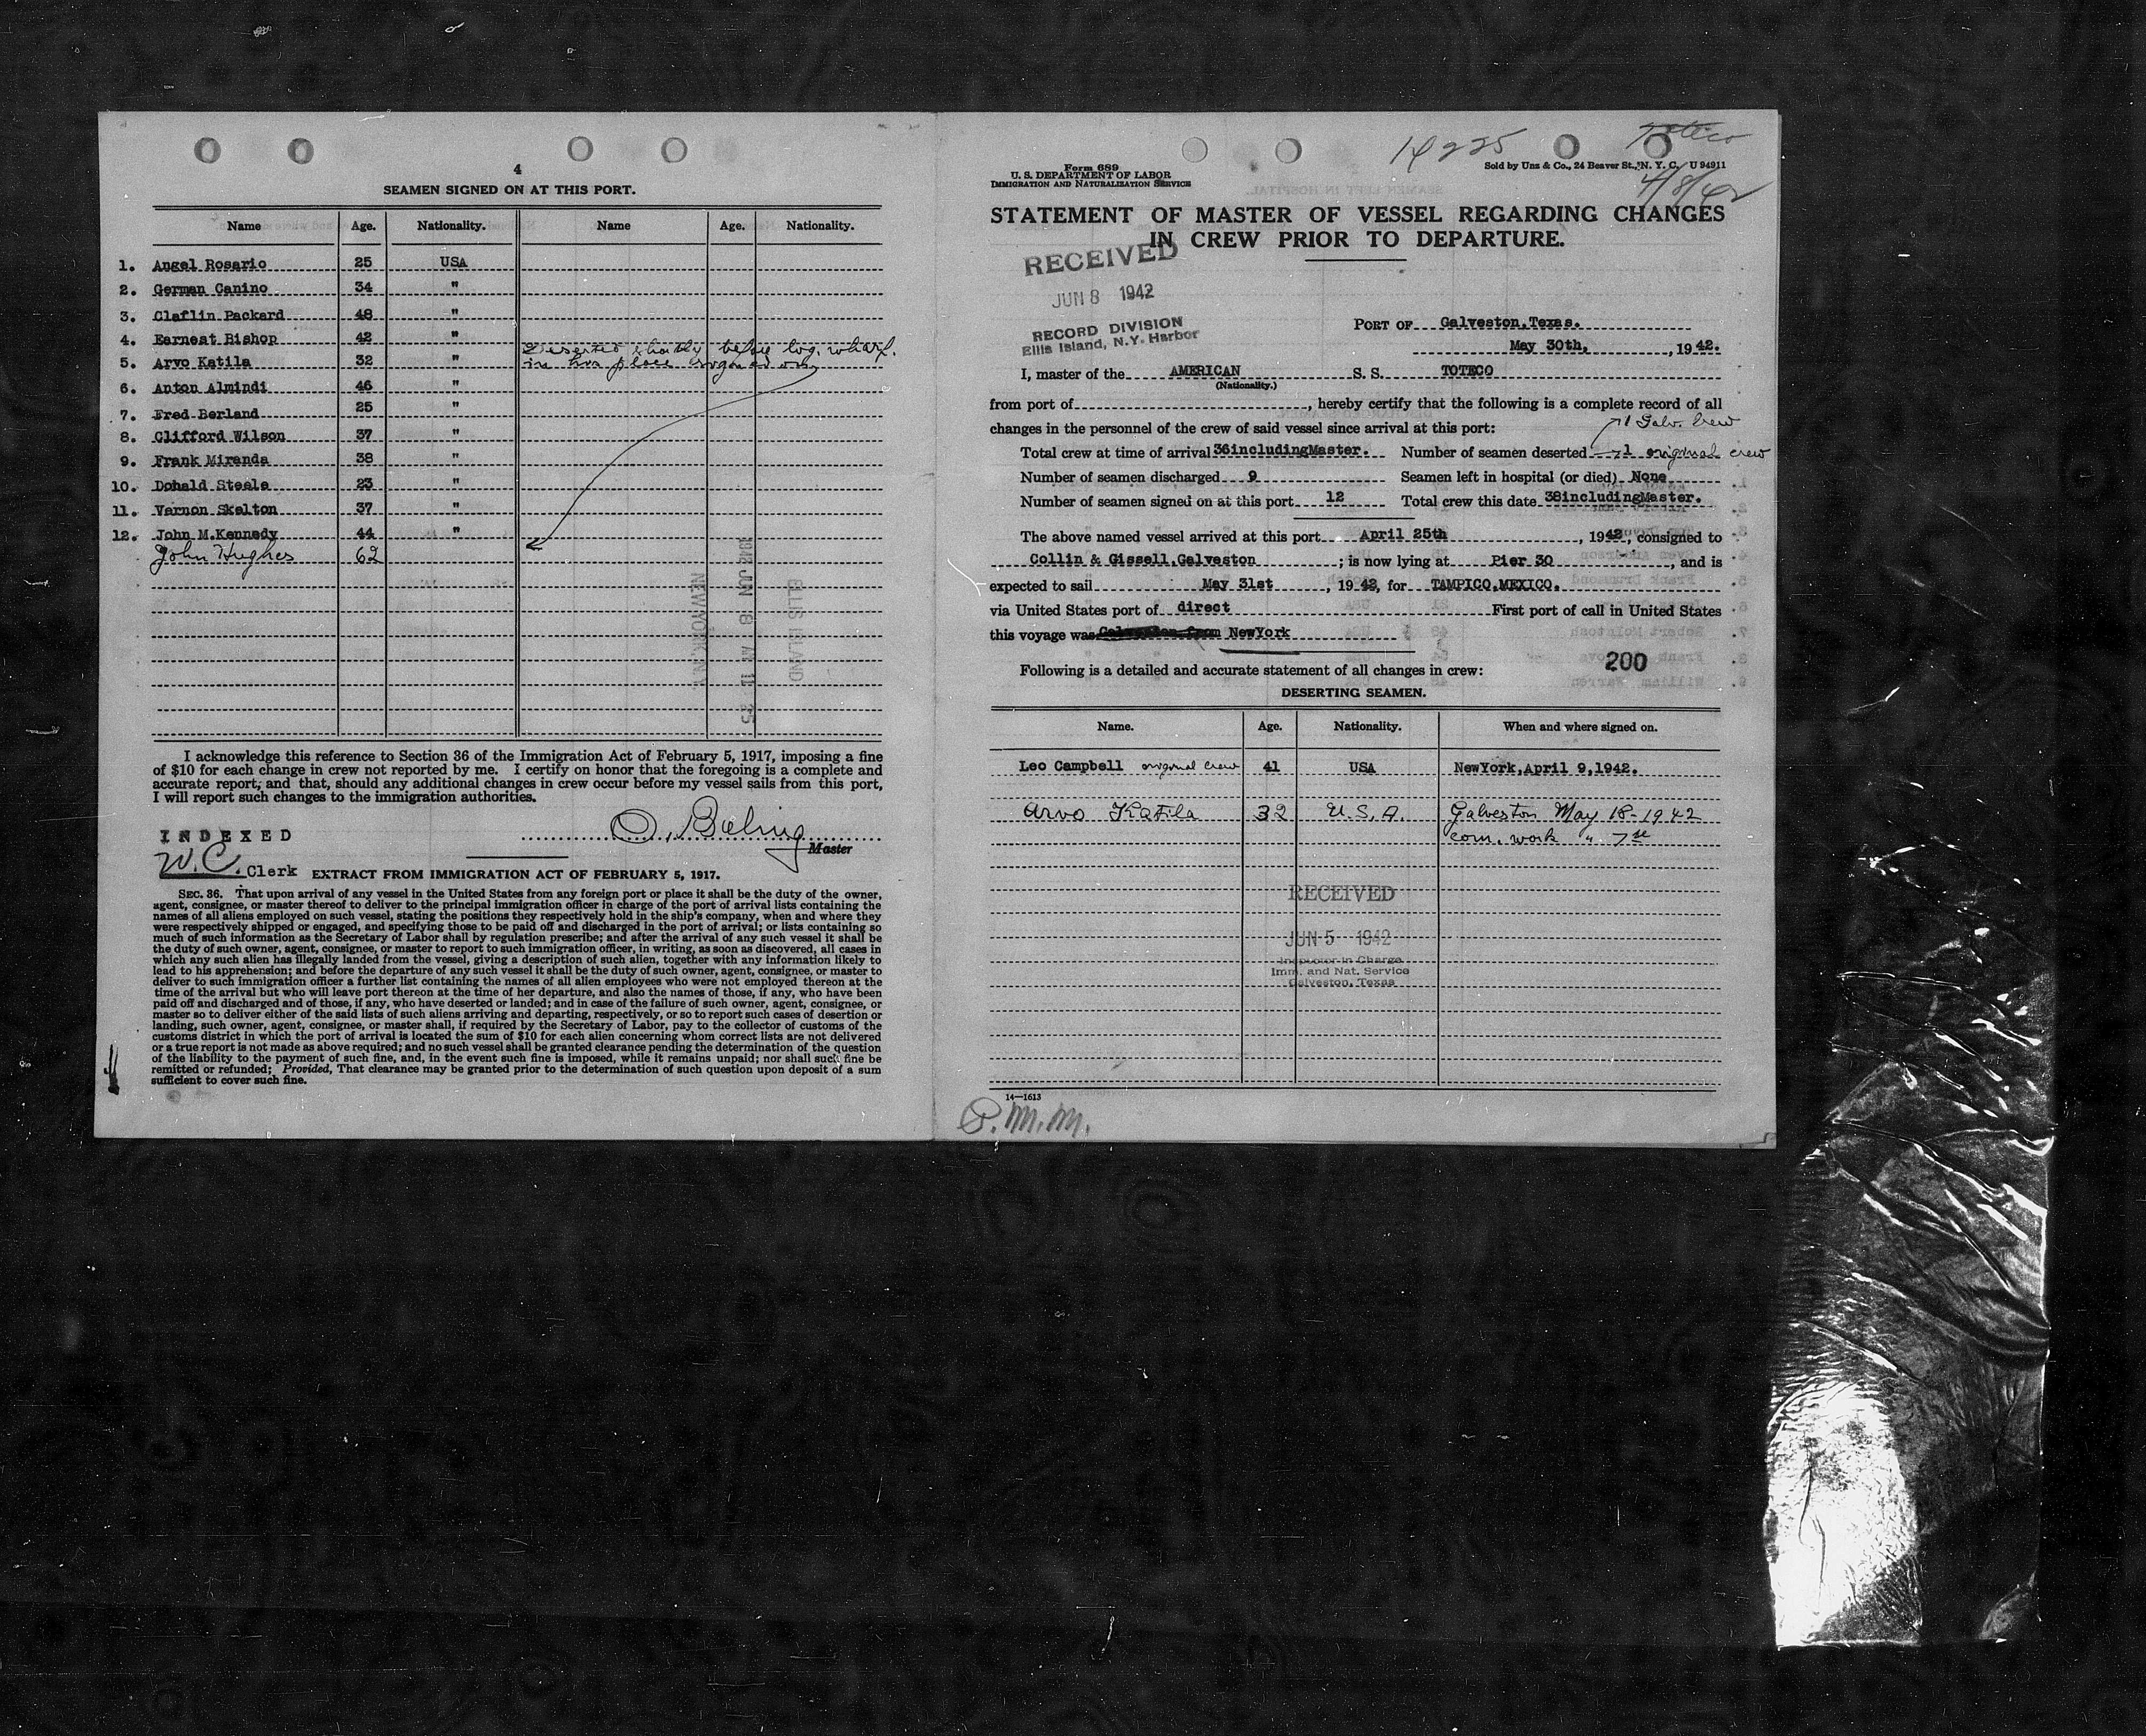 4
SEAMEN SIGNED ON AT THIS PORT.
Name Age. Nationality. Name Age. Nationality.
1. Angel Rosario 25 USA
2. German Canino 34 "
3. Claflin Packard 48 "
4. Earnest Bishop 42 "
Deserted shortly before lvg. wharf.
5. Arvo Katila 32 "
in his place signed on
6. Anton Almindi 46 "
7. Fred Berland 25 "
8. Clifford Wilson 37 "
9. Frank Miranda 38 "
10. Donald Steele 23 "
11. Vernon Skelton 37 "
12. John M.Kennedy 44 "
John Hughes 62
1942 JUN 8 AM 11 25
ELLIS ISLAND
NEW YORK, N.Y.
I acknowledge this reference to Section 36 of the Immigration Act of February 5, 1917, imposing a fine
of $10 for each change in crew not reported by me. I certify on honor that the foregoing is a complete and
accurate report, and that, should any additional changes in crew occur before my vessel sails from this port,
I will report such changes to the immigration authorities.
INDEXED
Master
W.C. Clerk
EXTRACT FROM IMMIGRATION ACT OF FEBRUARY 5, 1917.
SEC. 36. That upon arrival of any vessel in the United States from any foreign port or place it shall be the duty of the owner,
agent, consignee, or master thereof to deliver to the principal immigration officer in charge of the port of arrival lists containing the
names of all aliens employed on such vessel, stating the positions they respectively hold in the ship's company, when and where they
were respectively shipped or engaged, and specifying those to be paid off and discharged in the port of arrival; or lists containing so
much of such information as the Secretary of Labor shall by regulation prescribe; and after the arrival of any such vessel it shall be
the duty of such owner, agent, consignee, or master to report to such immigration officer, in writing, as soon as discovered, all cases in
which any such alien has illegally landed from the vessel, giving a description of such alien, together with any information likely to
lead to his apprehension; and before the departure of any such vessel it shall be the duty of such owner, agent, consignee, or master to
deliver to such immigration officer a further list containing the names of all alien employees who were not employed thereon at the
time of the arrival but who will leave port thereon at the time of her departure, and also the names of those, if any, who have been
paid off and discharged and of those, if any, who have deserted or landed; and in case of the failure of such owner, agent, consignee, or
master so to deliver either of the said lists of such aliens arriving and departing, respectively, or so to report such cases of desertion or
landing, such owner, agent, consignee, or master shall, if required by the Secretary of Labor, pay to the collector of customs of the
customs district in which the port of arrival is located the sum of $10 for each alien concerning whom correct lists are not delivered
or a true report is not made as above required; and no such vessel shall be granted clearance pending the determination of the question
of the liability to the payment of such fine, and, in the event such fine is imposed, while it remains unpaid; nor shall such fine be
remitted or refunded; Provided, That clearance may be granted prior to the determination of such question upon deposit of a sum
sufficient to cover such fine.
14225
Toteco
Form 689
U. S. DEPARTMENT OF LABOR
IMMIGRATION AND NATURALIZATION SERVICE
Sold by Unz & Co., 24 Beaver St., N. Y. C. U 94911
4/8/42
STATEMENT OF MASTER OF VESSEL REGARDING CHANGES
IN CREW PRIOR TO DEPARTURE.
RECEIVED
JUN 8 1942
RECORD DIVISION
Ellis Island, N.Y. Harbor
PORT OF Galveston,Texas.
May 30th, , 1942.
I, master of the AMERICAN S. S. TOTECO
(Nationality.)
from port of , hereby certify that the following is a complete record of all
changes in the personnel of the crew of said vessel since arrival at this port:
1 Galv. Crew
Total crew at time of arrival 36includingMaster. Number of seamen deserted 1 original crew
Number of seamen discharged 9 Seamen left in hospital (or died) None
Number of seamen signed on at this port 12 Total crew this date 38includingMaster.
The above named vessel arrived at this port April 25th , 1942, consigned to
Collin & Gissell,Galveston ; is now lying at Pier 30 , and is
expected to sail May 31st , 1942, for TAMPICO,MEXICO.
via United States port of direct First port of call in United States
this voyage was Galveston from NewYork
200
Following is a detailed and accurate statement of all changes in crew:
DESERTING SEAMEN.
Name. Age. Nationality. When and where signed on.
Leo Campbell original crew 41 USA NewYork,April 9,1942.
Arvo Katila 32 U.S.A. Galveston May 18-1942
com. work " 7
RECEIVED
JUN 5 1942
Inspector in Charge
Imm. and Nat. Service
Galveston, Texas
14—1613
P.M.M.